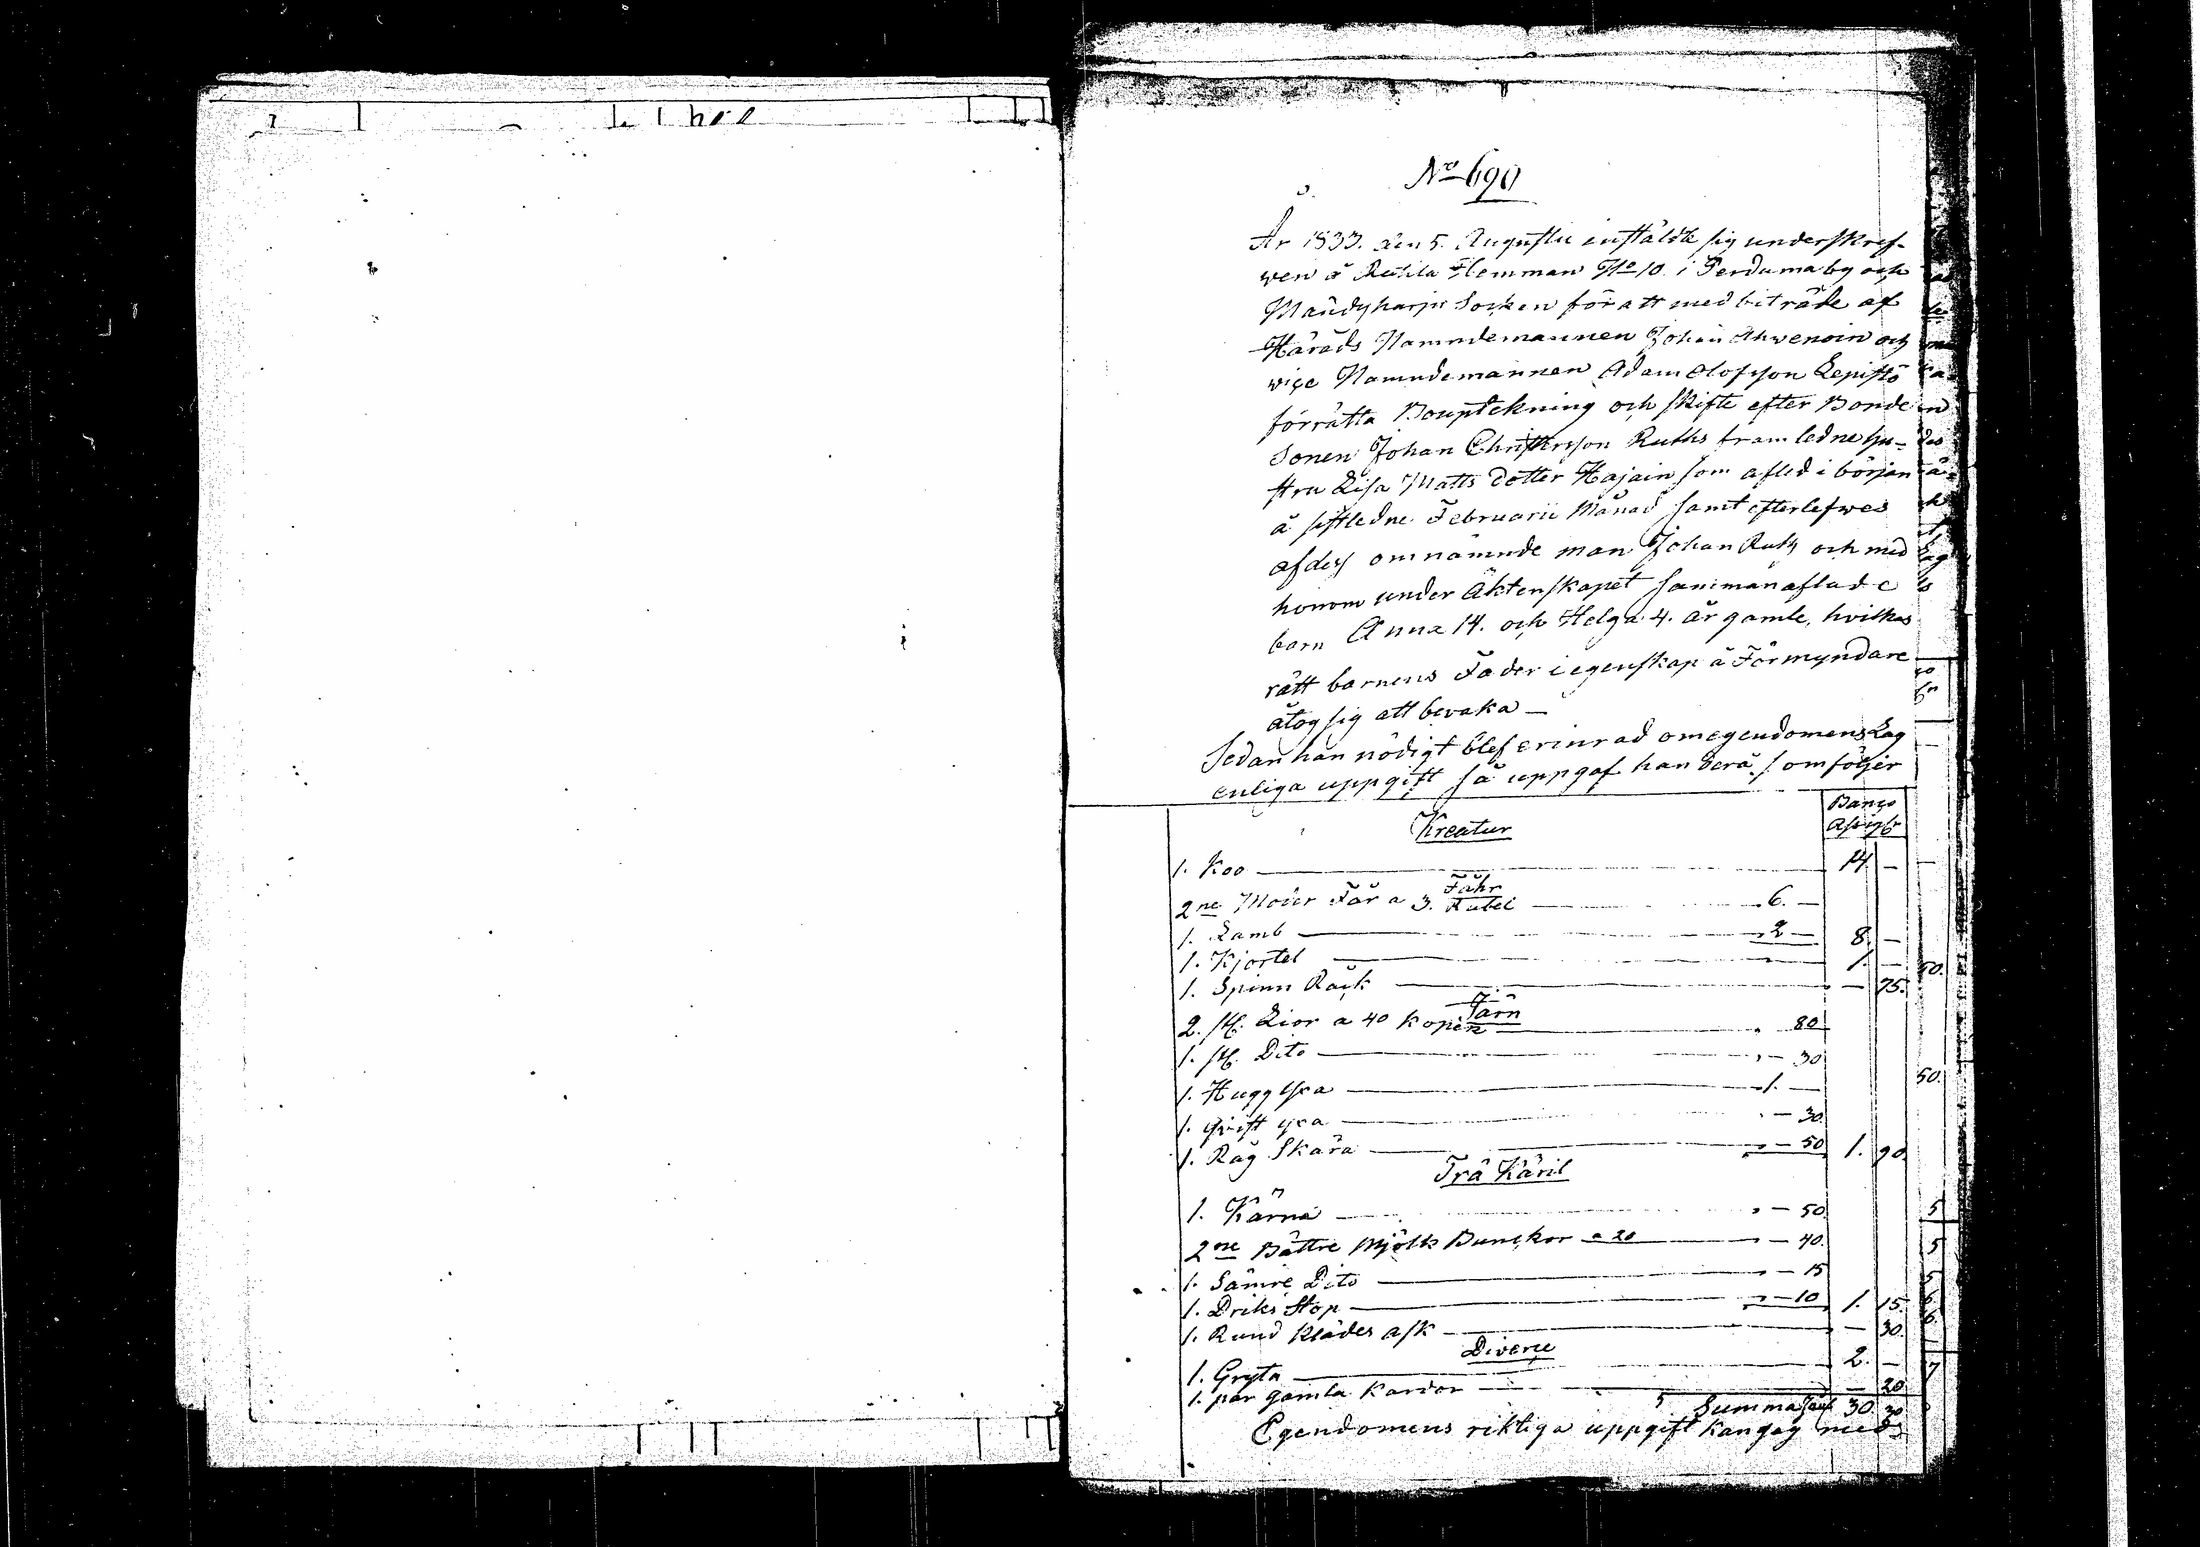 No 690
År 1833. den 5. Augustii instälde sig underskref-
wen å Rutila Hemman No 10. i Perduma by och
Mändyharju Socken för att med biträde af
Härads Nämndemannen Johan Ahwenoin och
wiçe Namndemannen Adam Olofsson Lepistö
förrätta Boupteckning och skifte efter Bonde
Sonen Johan Christersson Ruths framledne hu-
stru Lisa Matts dotter Hajain som afled i början
å sistledne Februarii Månad samt efterlefwes
af dess omnämnde man Johan Ruth och med
honom under Äktenskapet sammanaflade
barn Anna 14. och Helga 4. år gamle, hvilkas
rätt barnens Fader i egenskap å Förmyndare
åtog sig att bevaka —
Sedan han nödigt blef erinrad om egendomens Lag
enliga uppgift så uppgaf han derå som följer
Banco
Assigr
Kreatur
1. Koo — 14. —
Fåhr
2ne Moder Får a 3. Rubel — 6. —
1. Lamb — 2 — 8. —
1. Kjortel — 1. —
1. Spinn Råck — 75.
Järn
2. st. Lior a 40 kopek — 80
1. st. Dito — 30
1. Hugg yxa — 1. —
1. yxa — 30
1. Råg Skära — 50 1. 90
Trä Käril
1. Kärna — 50.
2ne Bättre Mjölk Bunckor a 20 — 40.
1. Sämre Dito — 15
1. Driks Stop — 10 1. 15.
1. Rund Klädes ask — 30.
Diverse
1. Gryta — 2. —
1. par gamla Kardor — 20
Summa 30 30
Egendomens riktiga uppgift kan jag med